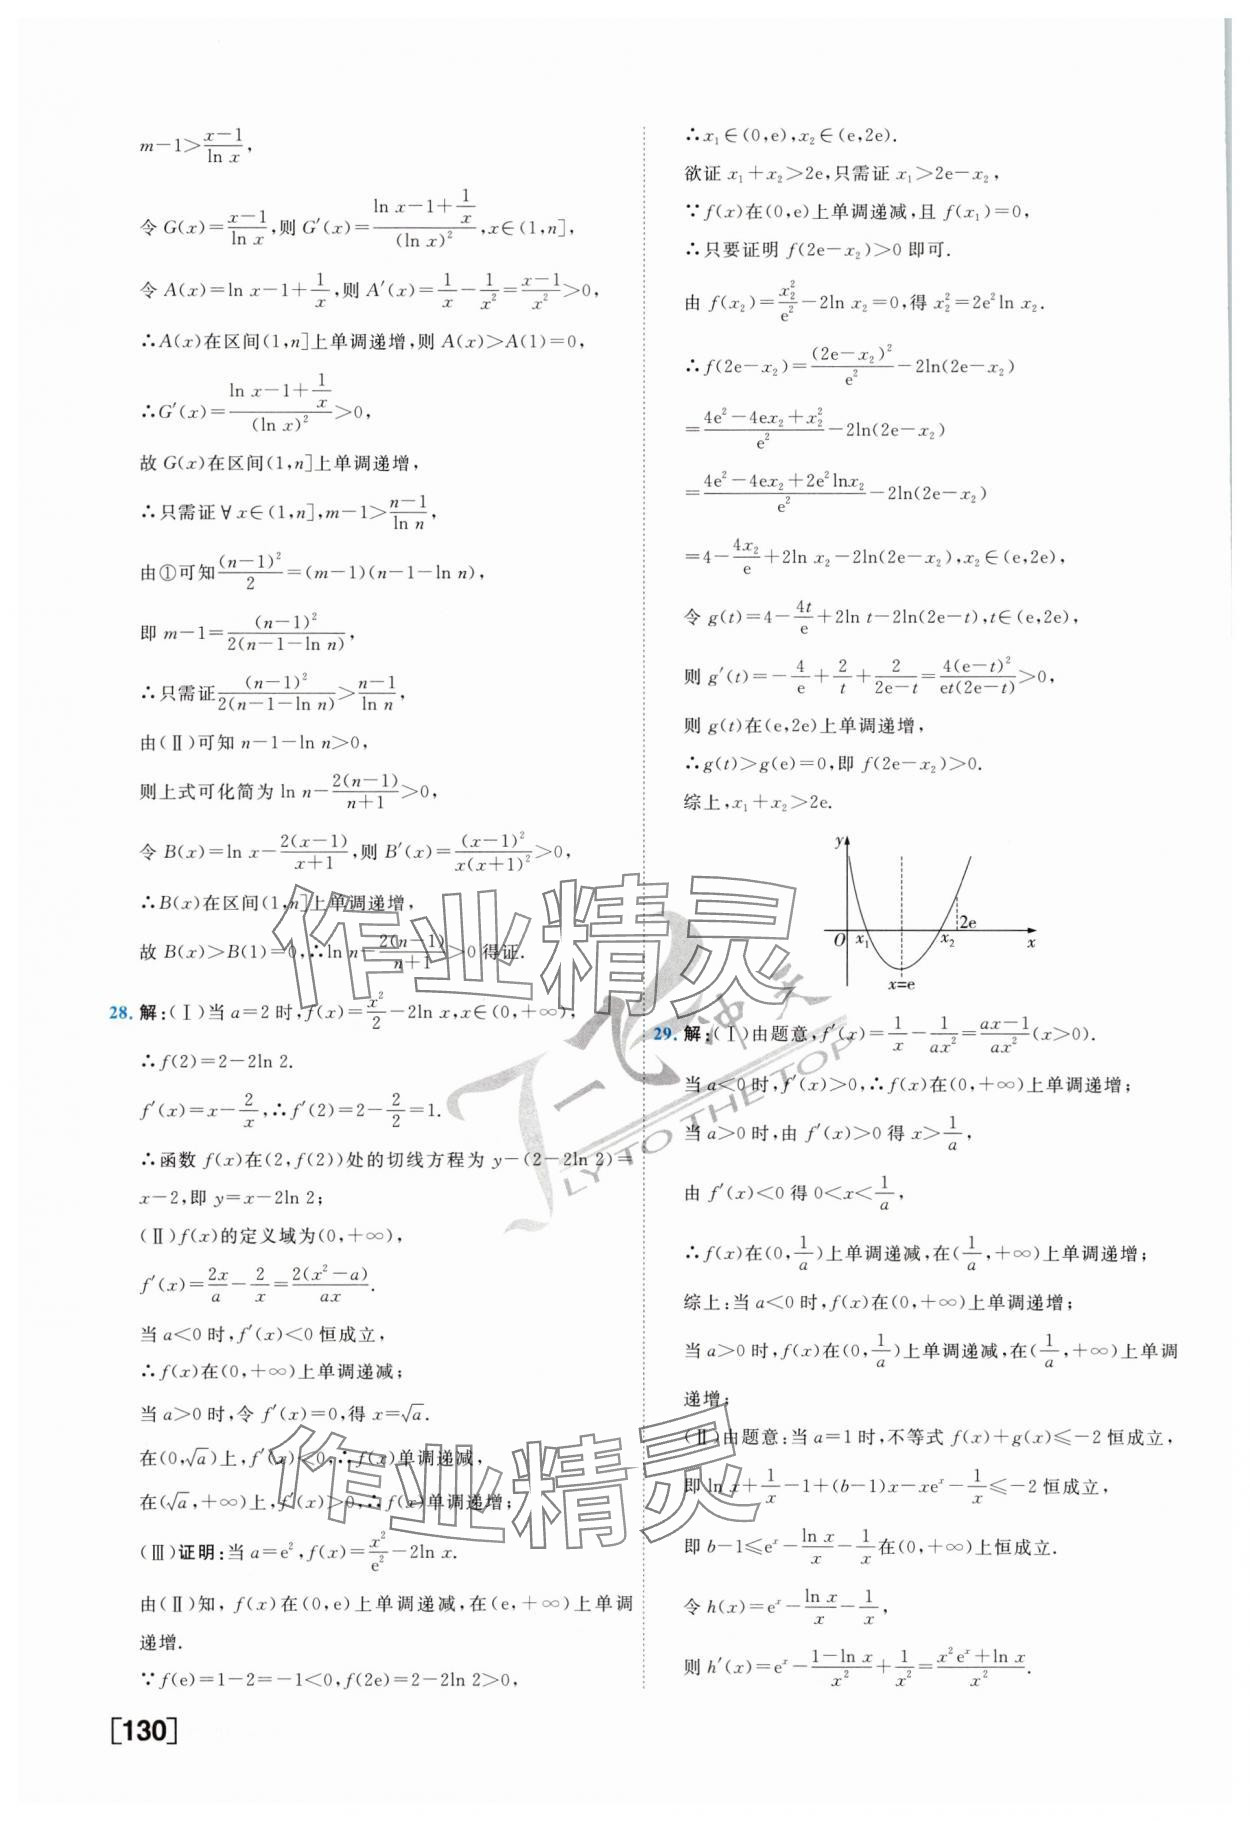 m−1>(x−1)/(ln x),
令 G(x)=(x−1)/(ln x),则 G′(x)=(ln x−1+1/x)/(ln x)²,x∈(1,n],
令 A(x)=ln x−1+1/x,则 A′(x)=1/x−1/x²=(x−1)/x²>0,
∴A(x)在区间(1,n]上单调递增,则 A(x)>A(1)=0,
∴G′(x)=(ln x−1+1/x)/(ln x)²>0,
故 G(x)在区间(1,n]上单调递增,
∴只需证∀x∈(1,n],m−1>(n−1)/(ln n),
由①可知(n−1)²/2=(m−1)(n−1−ln n),
即 m−1=(n−1)²/(2(n−1−ln n)),
∴只需证(n−1)²/(2(n−1−ln n))>(n−1)/(ln n),
由(Ⅱ)可知 n−1−ln n>0,
则上式可化简为 ln n−2(n−1)/(n+1)>0,
令 B(x)=ln x−2(x−1)/(x+1),则 B′(x)=(x−1)²/(x(x+1)²)>0,
∴B(x)在区间(1,n]上单调递增,
故 B(x)>B(1)=0,∴ln n−2(n−1)/(n+1)>0 得证.
28. 解:(Ⅰ)当 a=2 时,f(x)=x²/2−2ln x,x∈(0,+∞),
∴f(2)=2−2ln 2.
f′(x)=x−2/x,∴f′(2)=2−2/2=1.
∴函数 f(x)在(2,f(2))处的切线方程为 y−(2−2ln 2)=
x−2,即 y=x−2ln 2;
(Ⅱ)f(x)的定义域为(0,+∞),
f′(x)=2x/a−2/x=2(x²−a)/(ax).
当 a<0 时,f′(x)<0 恒成立,
∴f(x)在(0,+∞)上单调递减;
当 a>0 时,令 f′(x)=0,得 x=√a.
在(0,√a)上,f′(x)<0,∴f(x)单调递减,
在(√a,+∞)上,f′(x)>0,∴f(x)单调递增;
(Ⅲ)证明:当 a=e²,f(x)=x²/e²−2ln x.
由(Ⅱ)知,f(x)在(0,e)上单调递减,在(e,+∞)上单调
递增.
∵f(e)=1−2=−1<0,f(2e)=2−2ln 2>0,
[130]
∴x₁∈(0,e),x₂∈(e,2e).
欲证 x₁+x₂>2e,只需证 x₁>2e−x₂,
∵f(x)在(0,e)上单调递减,且 f(x₁)=0,
∴只要证明 f(2e−x₂)>0 即可.
由 f(x₂)=x₂²/e²−2ln x₂=0,得 x₂²=2e²ln x₂.
∴f(2e−x₂)=(2e−x₂)²/e²−2ln(2e−x₂)
=(4e²−4ex₂+x₂²)/e²−2ln(2e−x₂)
=(4e²−4ex₂+2e²lnx₂)/e²−2ln(2e−x₂)
=4−4x₂/e+2ln x₂−2ln(2e−x₂),x₂∈(e,2e),
令 g(t)=4−4t/e+2ln t−2ln(2e−t),t∈(e,2e),
则 g′(t)=−4/e+2/t+2/(2e−t)=4(e−t)²/(et(2e−t))>0,
则 g(t)在(e,2e)上单调递增,
∴g(t)>g(e)=0,即 f(2e−x₂)>0.
综上,x₁+x₂>2e.
y
2e
O x₁ x₂ x
x=e
29. 解:(Ⅰ)由题意,f′(x)=1/x−1/(ax²)=(ax−1)/(ax²)(x>0).
当 a<0 时,f′(x)>0,∴f(x)在(0,+∞)上单调递增;
当 a>0 时,由 f′(x)>0 得 x>1/a,
由 f′(x)<0 得 0<x<1/a,
∴f(x)在(0,1/a)上单调递减,在(1/a,+∞)上单调递增;
综上:当 a<0 时,f(x)在(0,+∞)上单调递增;
当 a>0 时,f(x)在(0,1/a)上单调递减,在(1/a,+∞)上单调
递增;
(Ⅱ)由题意:当 a=1 时,不等式 f(x)+g(x)≤−2 恒成立,
即 ln x+1/x−1+(b−1)x−xeˣ−1/x≤−2 恒成立,
即 b−1≤eˣ−(ln x)/x−1/x在(0,+∞)上恒成立.
令 h(x)=eˣ−(ln x)/x−1/x,
则 h′(x)=eˣ−(1−ln x)/x²+1/x²=(x²eˣ+ln x)/x².
作业精灵
一飞冲天
FLY TO THE TOP
作业精灵